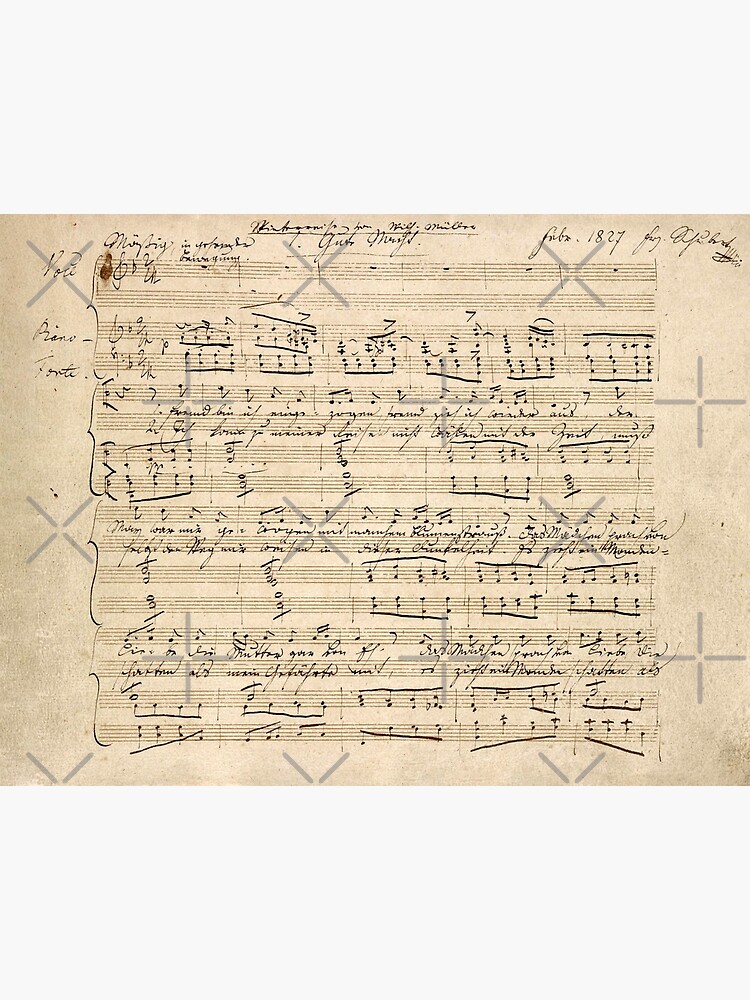 Winterreise von Wilh. Müller
Mäßig, in gehender Bewegung. 1. Gute Nacht. Febr. 1827 Frz. Schubert
Voce
Piano-
Forte.
1. Fremd bin ich einge- zogen fremd zieh ich wieder aus der
2. Ich kann zu meiner Reise nicht wählen mit der Zeit, muß
May war mir ge- wogen mit manchem Blumenstrauß. Das Mädchen sprach von
selbst den Weg mir weisen in dieser Dunkelheit Es zieht ein Monden-
Lie- be die Mutter gar von Eh' das Mädchen sprach von Liebe die
schatten als mein Gefährte mit, es zieht ein Mondenschatten als